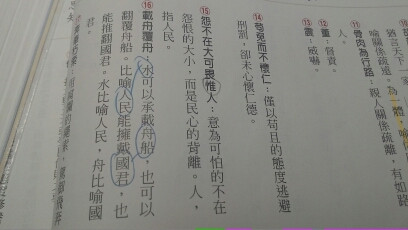 骨肉為行路:親人關係疏離,有如路
董:督責。
震:威嚇。
⑭ 苟免而不懷仁:僅以苟且的態度逃避
刑罰,卻未心懷仁德。
⑮ 怨不在大可畏惟人:意為可怕的不在
怨恨的大小,而是民心的背離。人,
指人民。
⑯ 載舟覆舟:水可以承載舟船,也可以
翻覆舟船。比喻人民能擁戴國君,也
能推翻國君。水比喻人民,舟比喻國
君。